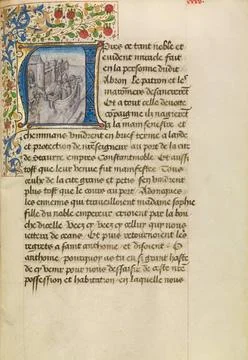 Apres ce tant noble et
euident miracle fait
en la personne dudit
Abron Le patron et les
maronniers desancrerent
Et a tout celle deuote
compaignie ils nagierent
a la main senestre et
cheminans vindrent en brief terme a laide
et protection de nostre seigneur au port de la cite
de empres Constantinoble Et aussi
tost que leur venue fut manifestee Tous
ceulx de la cite grans et petis sen vindrent
plus tost que le cours au port Adonques
les ennemis qui trauailloient madame sophie
fille du noble empereur crioient par la bou
che dicelle Veez cy veez cy cellui qui nous
iettera de ceans Et puis retournoient les
regretz a saint anthoine et disoient O
anthoine pourquoy as tu eu si grant haste
de cy venir pour nous dessaisir de ceste nostre
possession et habitation en laquelle nous